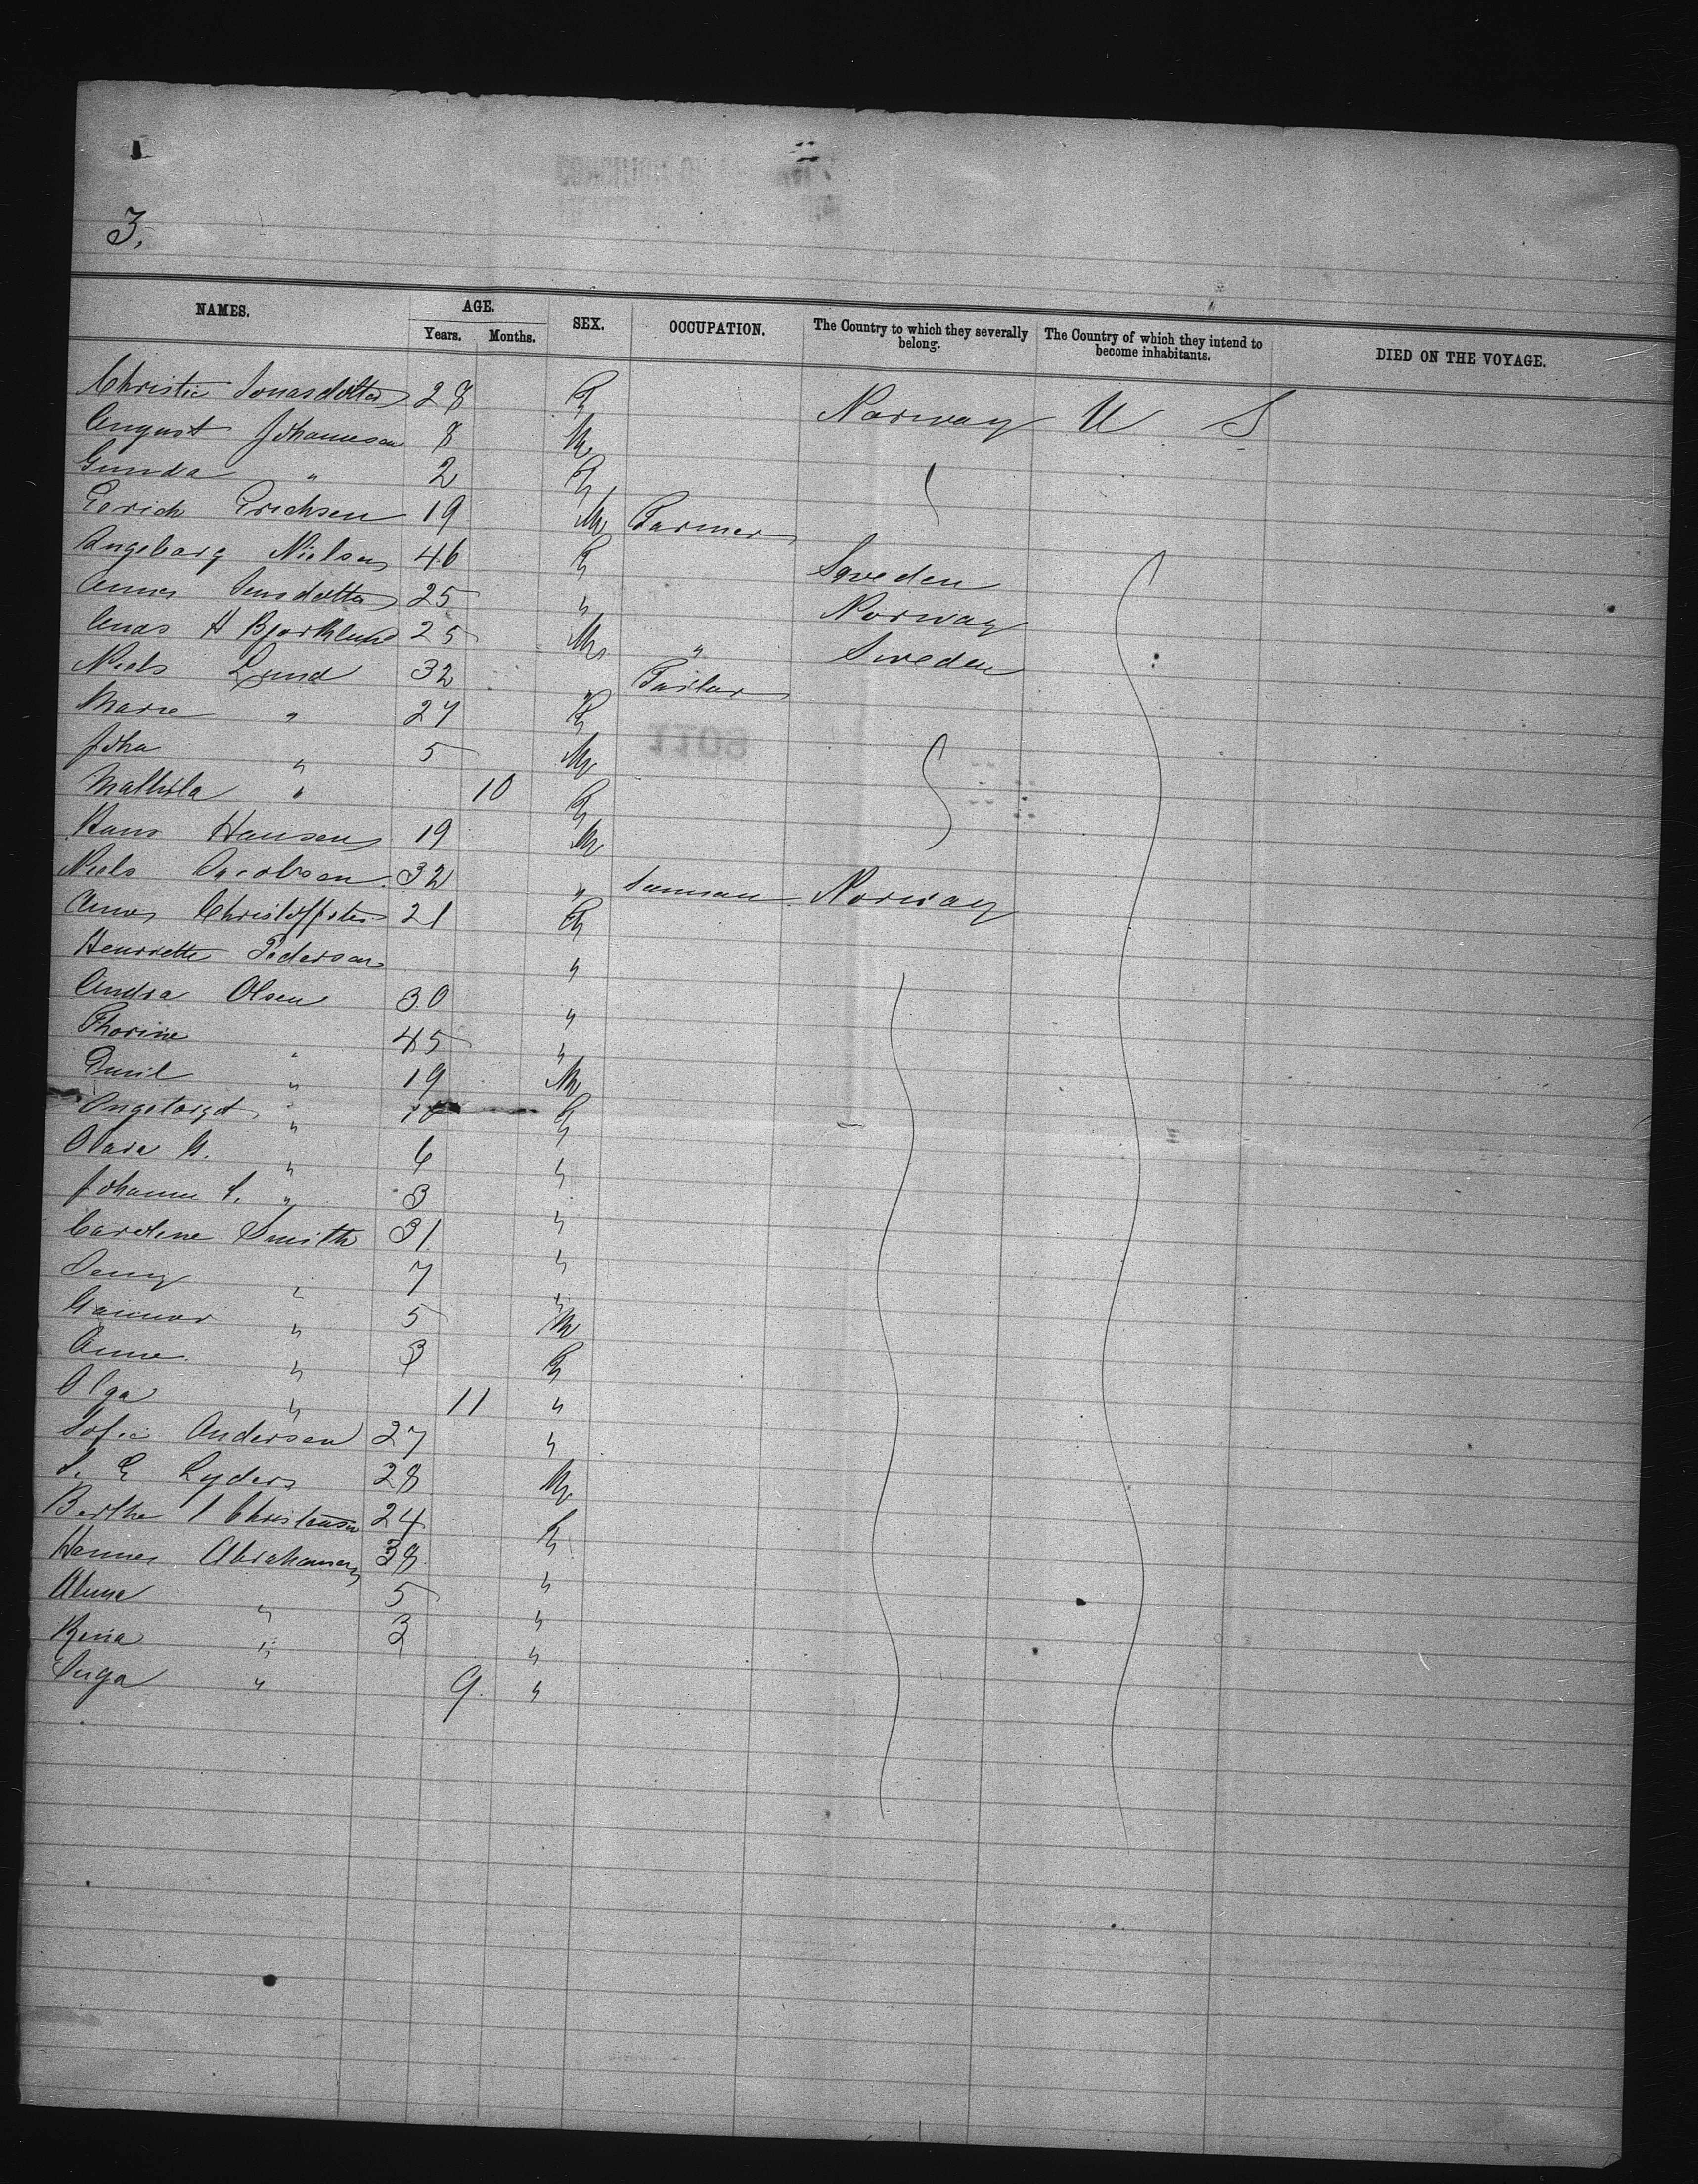 3.
NAMES. AGE. Years. Months. SEX. OCCUPATION. The Country to which they severally belong. The Country of which they intend to become inhabitants. DIED ON THE VOYAGE.
Christie Jonasdotter 28 F Norway U S
August Johannesen 8 M
Gunda " 2 F
Eerich Erichsen 19 M Farmer
Ingeborg Nielsen 46 F Sweden
Anna Jensdotter 25 " Norway
H Bjorklund 25 M " Sweden
Niels Lund 32 " Tailor
Marie " 27 F
Joha " 5 M
Mathila " 10 F
Hans Hansen 19 M
Niels Jacobsen 32 " Norway
Anna 21 F
Henriette Pedersen "
Andra Olsen 30 "
Thorine " 45 "
Emil " 19 M
" F
Clara G. " 6 "
Johanne S. " 3 "
Caroline Smith 31 "
Jenny " 7 "
Gunnar " 5 M
Anna " 3 F
Olga " 11 "
Sofie Andersen 27 "
S. E Lyders 28 M
Berthe J Christensen 24 F
Hanna Abrahamsen 38 "
Alma " 5 "
" 3 "
Inga " 9 "